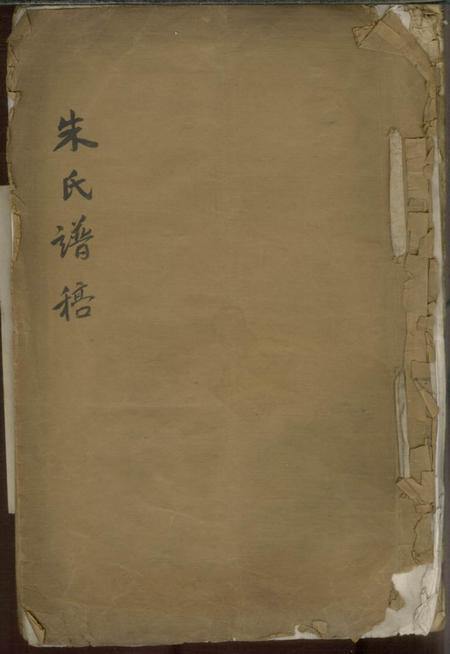 朱氏譜稿